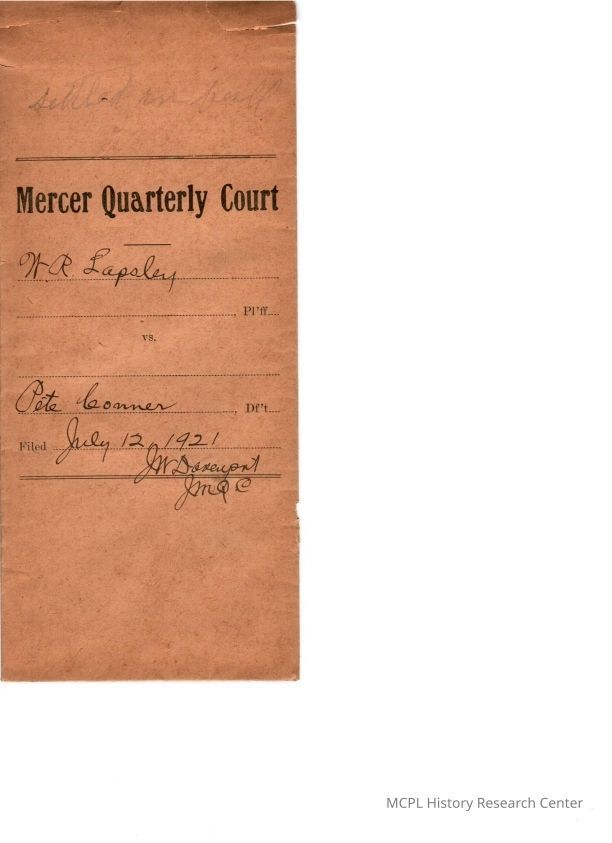 settled
Mercer Quarterly Court
W. R. Lapsley
Pl'ff
vs.
Pete Conner Df't
Filed July 12, 1921
JW Davenport
JMQC
MCPL History Research Center